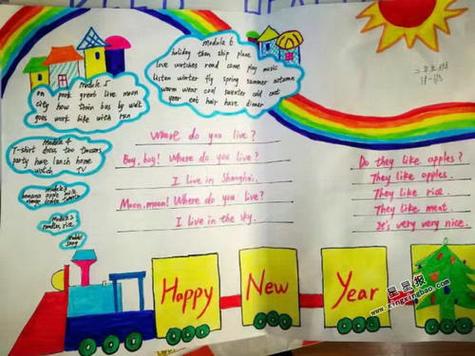 Module 6
holiday then ship plane
love watches read come play music
listen winter fly spring summer autumn
warm wear coat sweater cold eat
year eat hair have dinner
Module 5
on park great live moon
city how train bus by walk
goes work bike with run
Module 4
T-shirt dress too trousers
party have lunch home
watch TV
Module
noodles, rice
Where do you live?
Boy, boy! Where do you live?
I live in Shanghai.
Moon, moon! Where do you live?
I live in the sky.
Do they like apples?
They like apples.
They like rice.
They like meat.
It's very very nice.
Happy
New
Year
星星报
www.xingxingbao.com